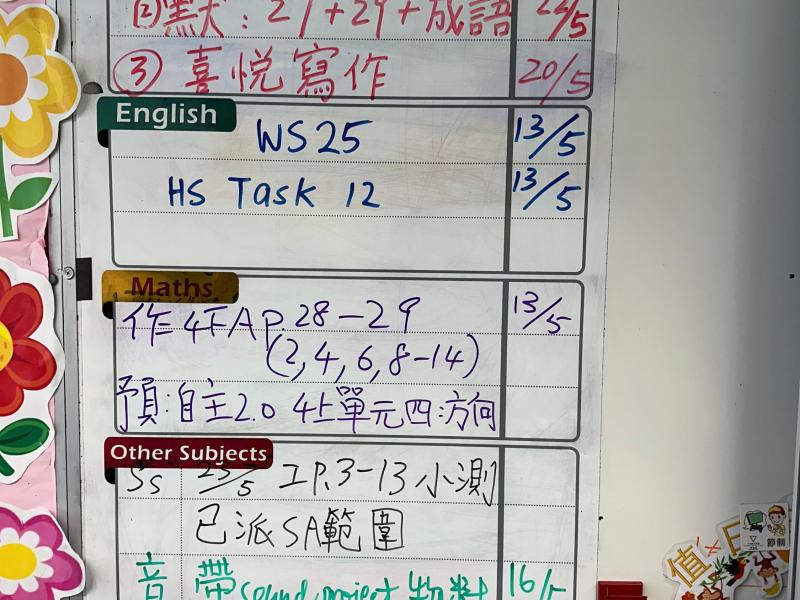 ②默：27+29+成語 22/5
③ 喜悅寫作 20/5
English
WS25 13/5
HS Task 12 13/5
Maths
作4下A p.28-29 13/5
(2,4,6,8-14)
預：自主2.0 4上單元四：方向
Other Subjects
Ss 23/5 工P.3-13 小測
已派SA範圍
音 帶sound project 物料 16/5
值日
節制